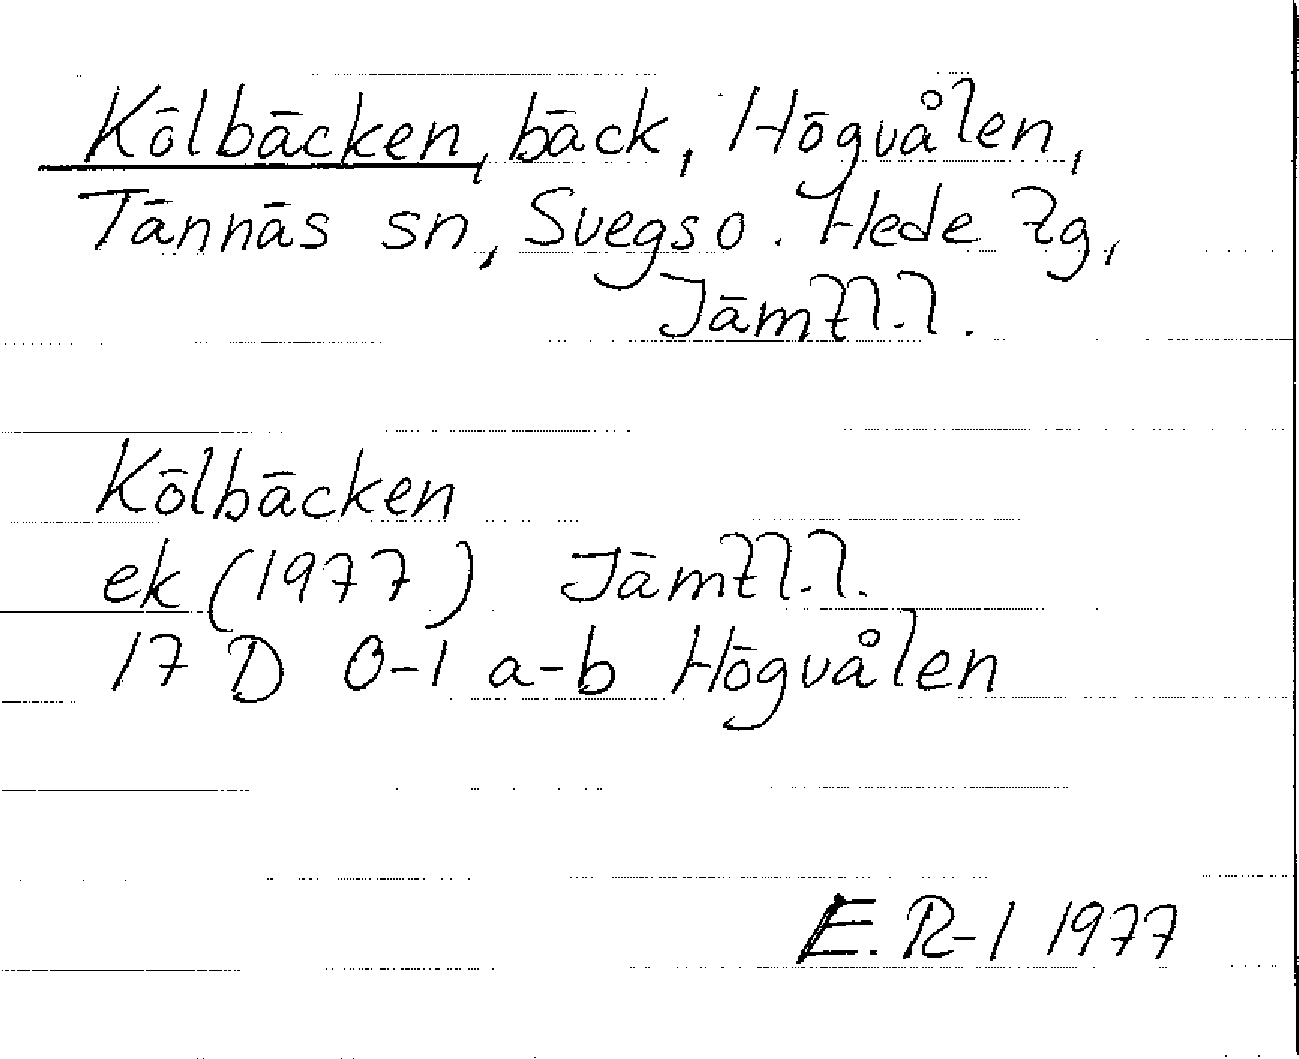 Kölbäcken, bäck, Högvålen,
Tännäs sn, Svegs o. Hede tg,
Jämtl. l.
Kölbäcken
ek (1977) Jämtl. l.
17 D 0-1 a-b Högvålen
E. R-l 1977